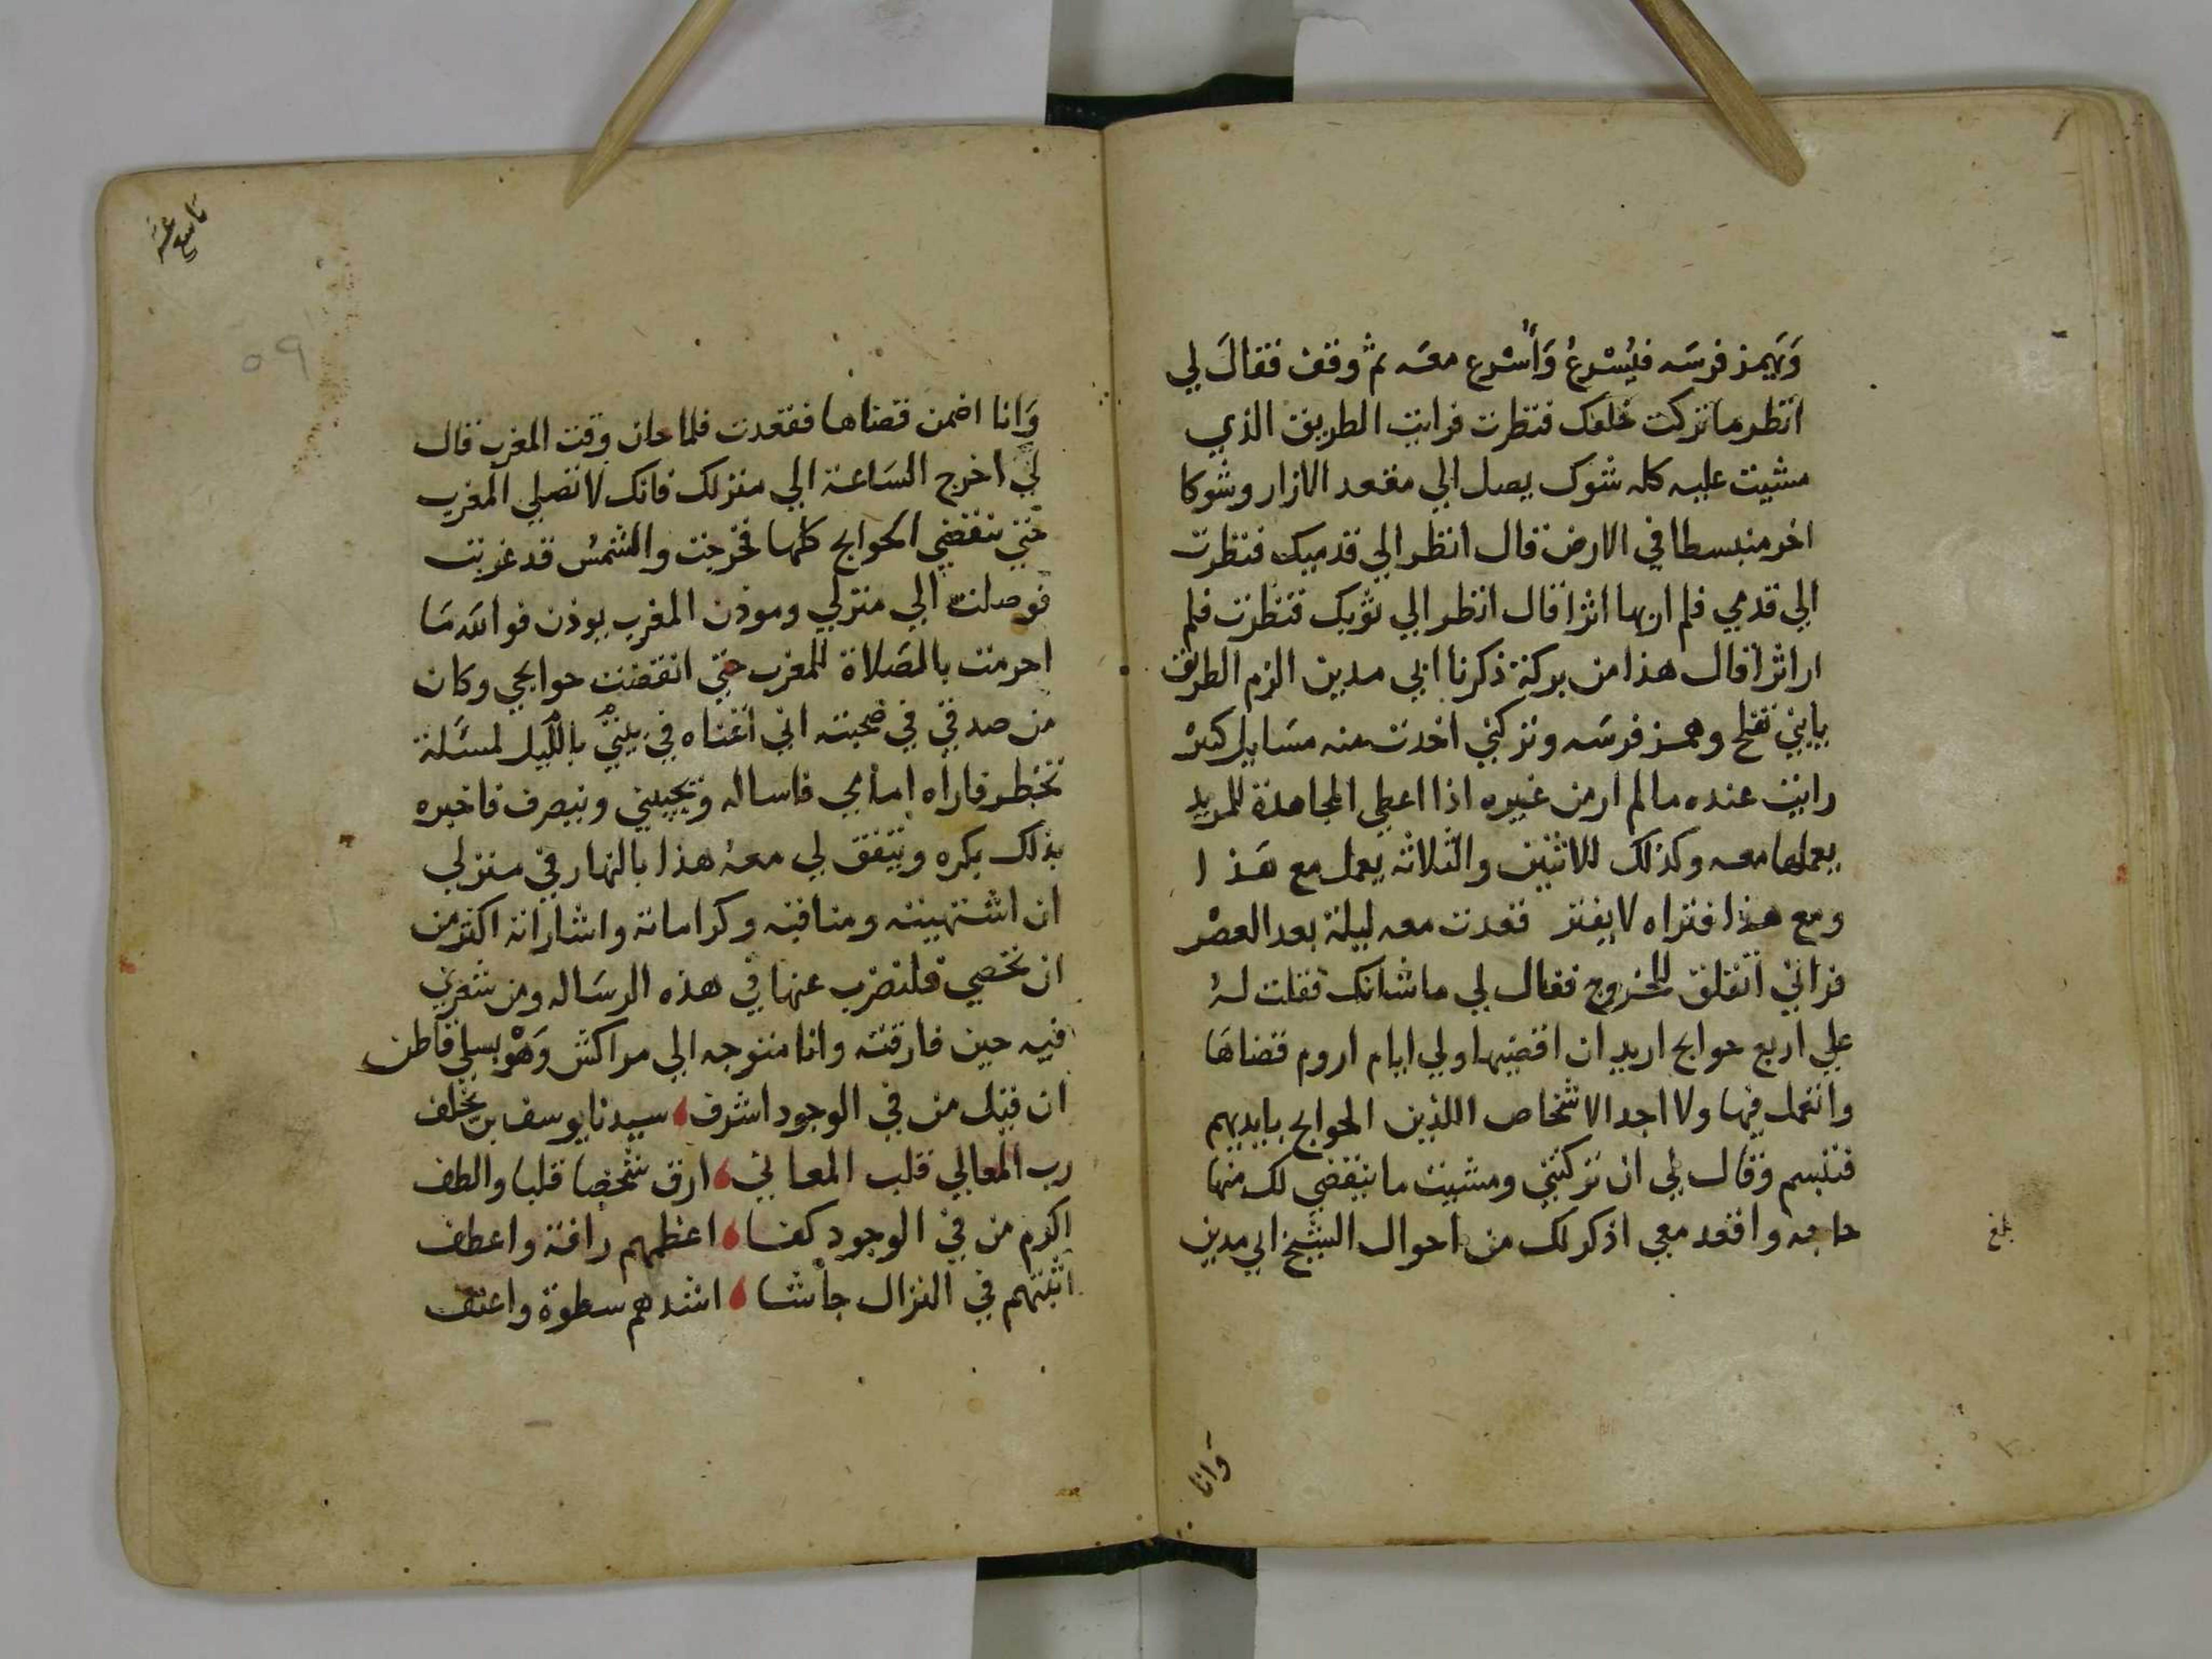 وَيهمز فرسَه فيُسْرعُ وَأسْرع معَه ثم وقف فقالَ لي
انظر ما تركت خلفك فنظرت فرايت الطريق الذي
مشيت عليه كله شوك يصل الي مقعد الازار وشوكا
اخر منبسطا في الارض قال انظر الي قدميك فنظرت
الي قدمي فلم ار بها اثرا قال انظر الي ثوبك فنظرت فلم
ار اثرا قال هذا من بركة ذكرنا ابي مدين الزم الطريق
يا بني تفلح وهمز فرسَه وتركني اخدت منه مسَايل كثيرْ
رايت عنده ما لم ار من غيره اذا اعطي المجاهدة للمريد
يعملها معه وكذلك للاثنين والثلاثه يعمل مع هَذا
ومع هذا فتراه لا يفتر قعدت معه ليلة بعد العصْر
فراني اتقلق للخروج فقال لي ما شانك فقلت لهُ
علي اربع حوايج اريد ان اقضيها ولي ايام اروم قضاهَا
واتعمل فيها ولا اجد الاشخاص اللذين الحوايج بايديهم
فتبسم وقال لي ان تركتني ومشيت ما ينقضي لك منها
حاجه واقعد معي اذكر لك من احوال الشيخ ابي مدين
بلغ
وَانا
تاسع عشر
٥٩
وَانا اضمن قضاها فقعدت فلما حان وقت المغرب قال
لي اخرج السَاعة الي منزلك فانك لا تصلي المغرب
حتي تنقضي الحوايج كلها فخرجت والشمسُ قد غربت
فوصلت الي منزلي وموذن المغرب يوذن فوالله مَا
احرمت بالصَلاة للمغرب حتي انقضت حوايجي وكان
من صدقي في صحبته اني اتمناه في بيتي بالليل لمسَلة
تخطر فاراه امامي فاساله ويجيبني وينصرف فاخبره
بذلك بكره ويتفق لي معهُ هذا بالنهار في منزلي
ان اشتهيته ومناقبه وكراماته واشاراته اكثر من
ان تحصي فلنضرب عنها في هذه الرسَاله ومن شعري
فيه حين فارقته وانا متوجه الي مراكش وَهْو بسلي قاطن
ان قيل من في الوجود اشرف سيدنا يوسف بن يخلف
رب المعالي قلب المعاني ارق شخصا قلبا والطف
اكرم من في الوجود كفا اعظمهم رافة واعطف
اثبتهم في النزال جاشا اشدهم سطوة واعنف